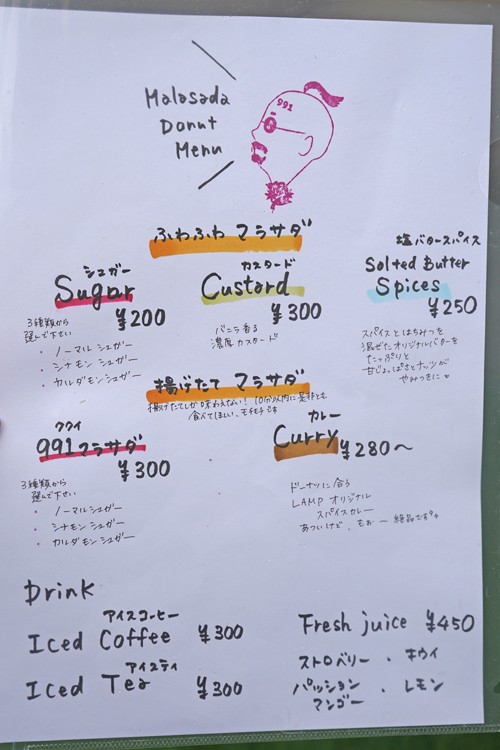 Malasada
Donut
Menu
991
ふわふわ マラサダ
シュガー
Sugar
¥200
3種類から
選んで下さい
・ ノーマル シュガー
・ シナモン シュガー
・ カルダモン シュガー
カスタード
Custard
¥300
バニラ香る
濃厚カスタード
塩バタースパイス
Solted Butter
Spices
¥250
スパイスとはちみつを
混ぜたオリジナルバターを
たっぷりと
甘じょっぱさとナッツが
やみつきに♡
揚げたて マラサダ
揚げたてしか味わえない! 10分以内に是非とも
食べてほしい、モチモチ
ククイ
991マラサダ
¥300
3種類から
選んで下さい
・ ノーマルシュガー
・ シナモン シュガー
・ カルダモン シュガー
カレー
Curry
¥280〜
ドーナツに合う
LAMP オリジナル
スパイスカレー
あついけど、もぉ〜 絶品です
Drink
アイスコーヒー
Iced Coffee ¥300
アイスティ
Iced Tea ¥300
Fresh juice ¥450
ストロベリー ・ キウイ
パッション ・ レモン
マンゴー